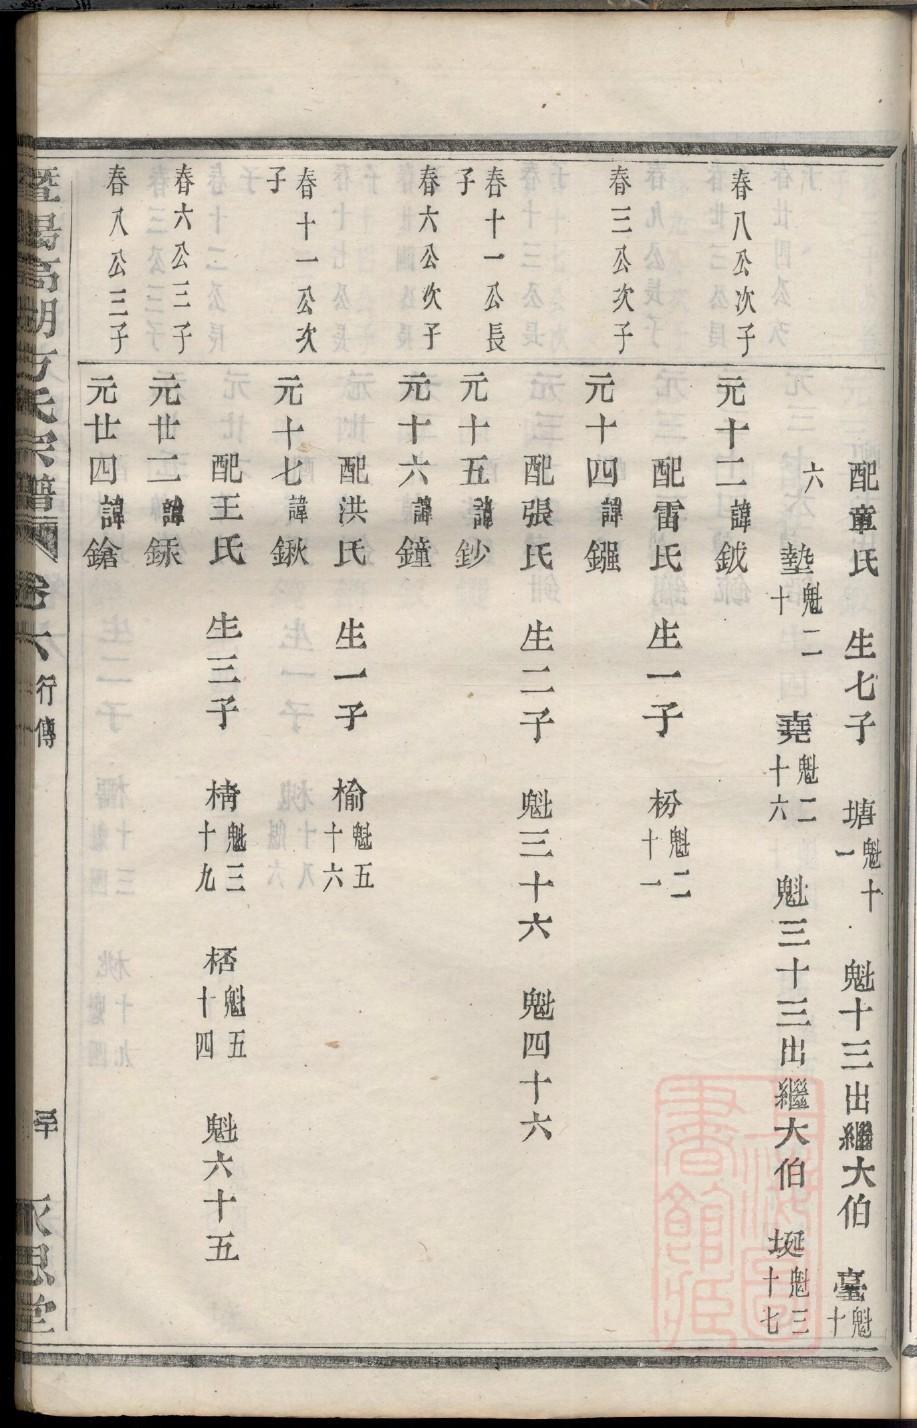 配童氏 生七子 塘魁十一 魁十三出繼大伯 臺魁十
六 墊魁二十 堯魁二十六 魁三十三出繼大伯 埏魁三十七
春八公次子 元十二諱鈸
配雷氏 生一子 枌魁二十一
春三公次子 元十四諱鎺
配張氏 生二子 魁三十六 魁四十六
春十一公長子 元十五諱鈔
春六公次子 元十六諱鐘
配洪氏 生一子 榆魁五十六
春十一公次子 元十七諱鍬
配王氏 生三子 棈魁三十九 桰魁五十四 魁六十五
春六公三子 元廿二諱銾
春八公三子 元廿四諱鎗
暨陽高湖方氏宗譜 卷六 行傳 永思堂